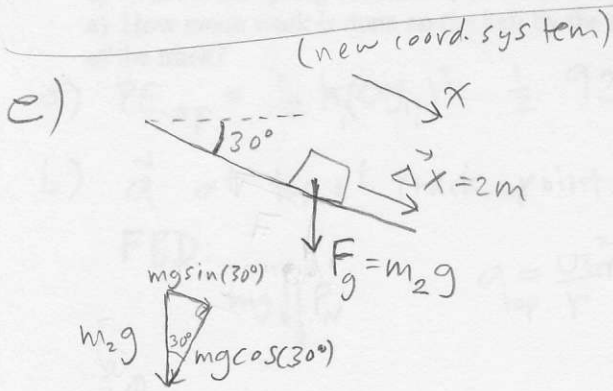 (new coord. system)
e)
x
30°
Δx⃗ = 2m
F_g = m₂g
mgsin(30°)
m₂g
30°
mgcos(30°)